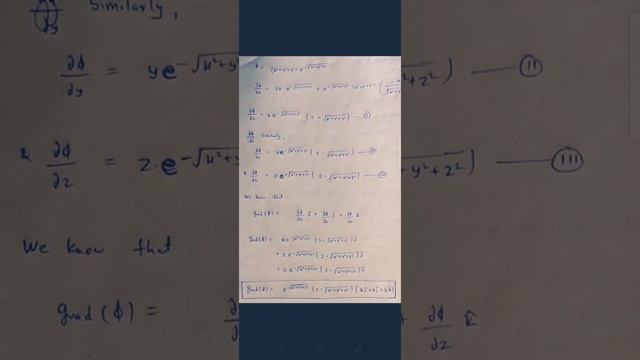 Similarly,
∂ϕ/∂y = ye^-√x²+y² + z²) — (II)
& ∂ϕ/∂z = ze^-√x²+y² + y² + z²) — (III)
We know that
grad(ϕ) = ∂ϕ/∂z k̂
ϕ = (x²+y²+z²) e^-√x²+y²+z²
∂ϕ/∂x = xe^-√x²+y²+z² (2-√x²+y²+z²) — (I)
Similarly,
∂ϕ/∂y = ye^-√x²+y²+z² (2-√x²+y²+z²) — (II)
& ∂ϕ/∂z = ze^-√x²+y²+z² (2-√x²+y²+z²) — (III)
We know that
grad(ϕ) = ∂ϕ/∂x î + ∂ϕ/∂y ĵ + ∂ϕ/∂z k̂
grad(ϕ) = xe^-√x²+y²+z² (2-√x²+y²+z²) î
+ ye^-√x²+y²+z² (2-√x²+y²+z²) ĵ
+ ze^-√x²+y²+z² (2-√x²+y²+z²) k̂
grad(ϕ) = e^-√x²+y²+z² (2-√x²+y²+z²) (xî+yĵ+zk̂)